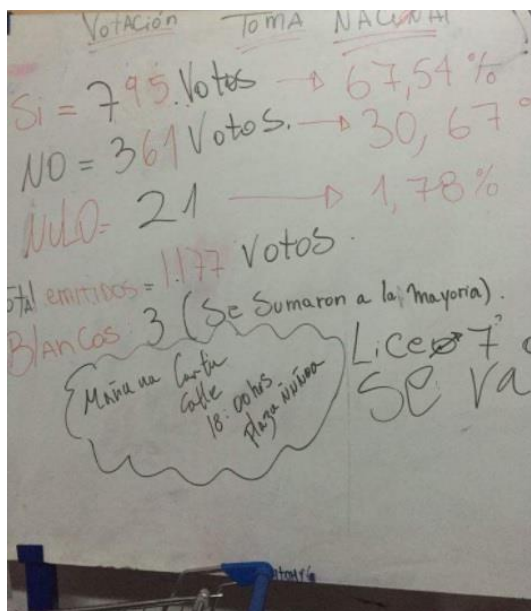 Votación Toma NACIONAl
Si = 795. Votos → 67,54 %
NO = 361 Votos. → 30,67
NULO = 21 → 1,78 %
Total emitidos = 1.177 Votos.
BlAnCos: 3 (Se Sumaron a la Mayoria).
Mañana
Calle
18:00 hrs
Plaza ÑUÑOA
Liceo 7
Se va